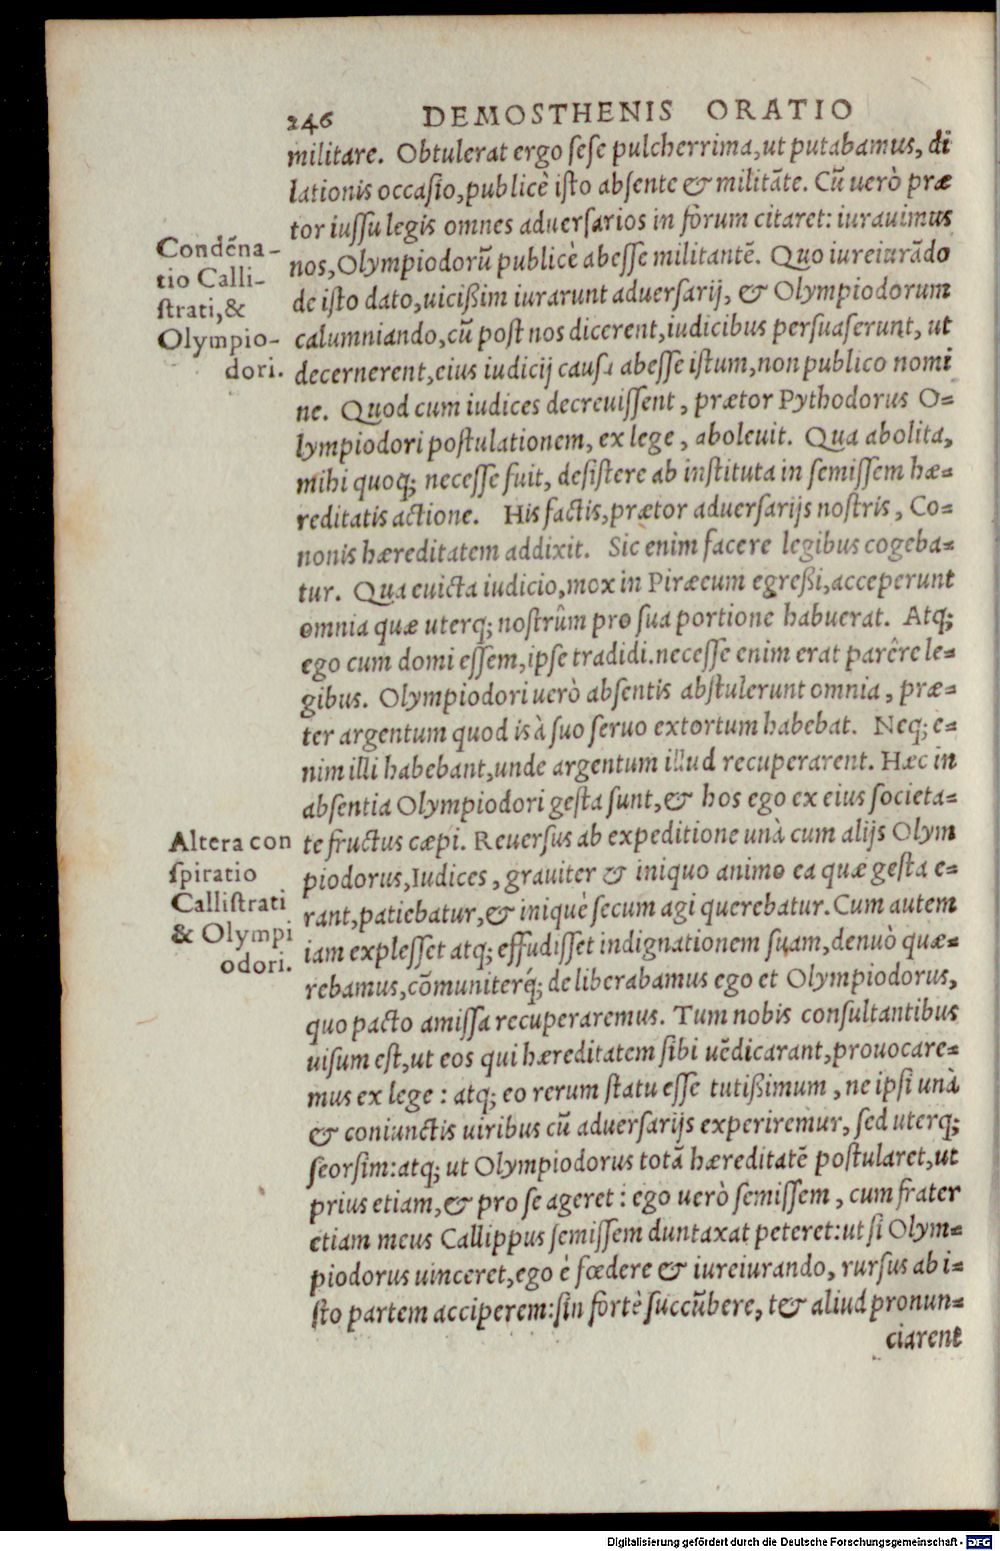 246 DEMOSTHENIS ORATIO
militare. Obtulerat ergo sese pulcherrima, ut putabamus, di
lationis occasio, publicè isto absente & militāte. Cū uerò præ
tor iussu legis omnes aduersarios in forum citaret: iurauimus
nos, Olympiodorū publicè abesse militantē. Quo iureiurādo
de isto dato, uicißim iurarunt aduersarij, & Olympiodorum
calumniando, cū post nos dicerent, iudicibus persuaserunt, ut
decernerent, eius iudicij causa abesse istum, non publico nomi
ne. Quod cum iudices decreuissent, prætor Pythodorus O=
lympiodori postulationem, ex lege, aboleuit. Qua abolita,
mihi quoq; necesse fuit, desistere ab instituta in semissem hæ=
reditatis actione. His factis, prætor aduersarijs nostris, Co=
nonis hæreditatem addixit. Sic enim facere legibus cogeba=
tur. Qua euicta iudicio, mox in Piræeum egreßi, acceperunt
omnia quæ uterq; nostrûm pro sua portione habuerat. Atq;
ego cum domi essem, ipse tradidi. necesse enim erat parêre le=
gibus. Olympiodori uerò absentis abstulerunt omnia, præ=
ter argentum quod is à suo seruo extortum habebat. Neq; e=
nim illi habebant, unde argentum illud recuperarent. Hæc in
absentia Olympiodori gesta sunt, & hos ego ex eius societa=
te fructus cæpi. Reuersus ab expeditione unà cum alijs Olym
piodorus, Iudices, grauiter & iniquo animo ea quæ gesta e=
rant, patiebatur, & iniquè secum agi querebatur. Cum autem
iam explesset atq; effudisset indignationem suam, denuò quæ=
rebamus, cōmuniterq́; deliberabamus ego et Olympiodorus,
quo pacto amissa recuperaremus. Tum nobis consultantibus
uisum est, ut eos qui hæreditatem sibi uēdicarant, prouocare=
mus ex lege: atq; eo rerum statu esse tutißimum, ne ipsi unà
& coniunctis uiribus cū aduersarijs experiremur, sed uterq;
seorsim: atq; ut Olympiodorus totā hæreditatē postularet, ut
prius etiam, & pro se ageret: ego uerò semissem, cum frater
etiam meus Callippus semissem duntaxat peteret: ut si Olym=
piodorus uinceret, ego è fœdere & iureiurando, rursus ab i=
sto partem acciperem: sin fortè succūbere, t& aliud pronun=
ciarent
Condēna-
tio Calli-
strati, &
Olympio-
dori.
Altera con
spiratio
Callistrati
& Olympi
odori.
Digitalisierung gefördert durch die Deutsche Forschungsgemeinschaft - DFG